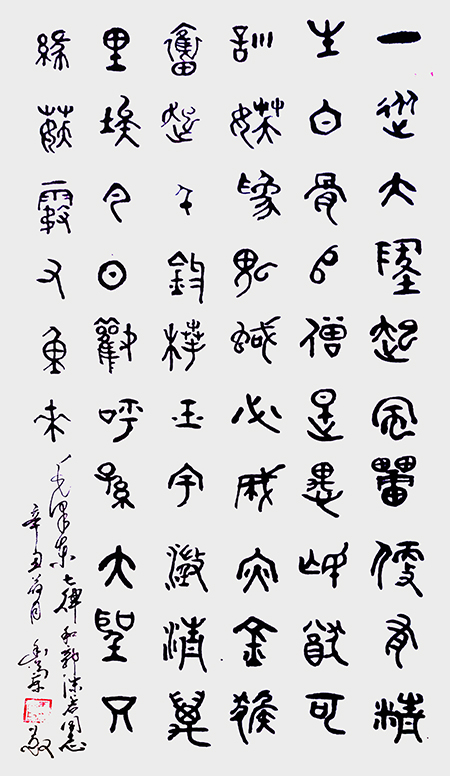 一從大地起風雷便有精
生白骨堆僧是愚氓猶可
訓妖為鬼蜮必成災金猴
奮起千鈞棒玉宇澂清萬
里埃今日歡呼孫大聖只
緣妖霧又重來
毛澤東七律和郭沫若同志
辛丑荷月